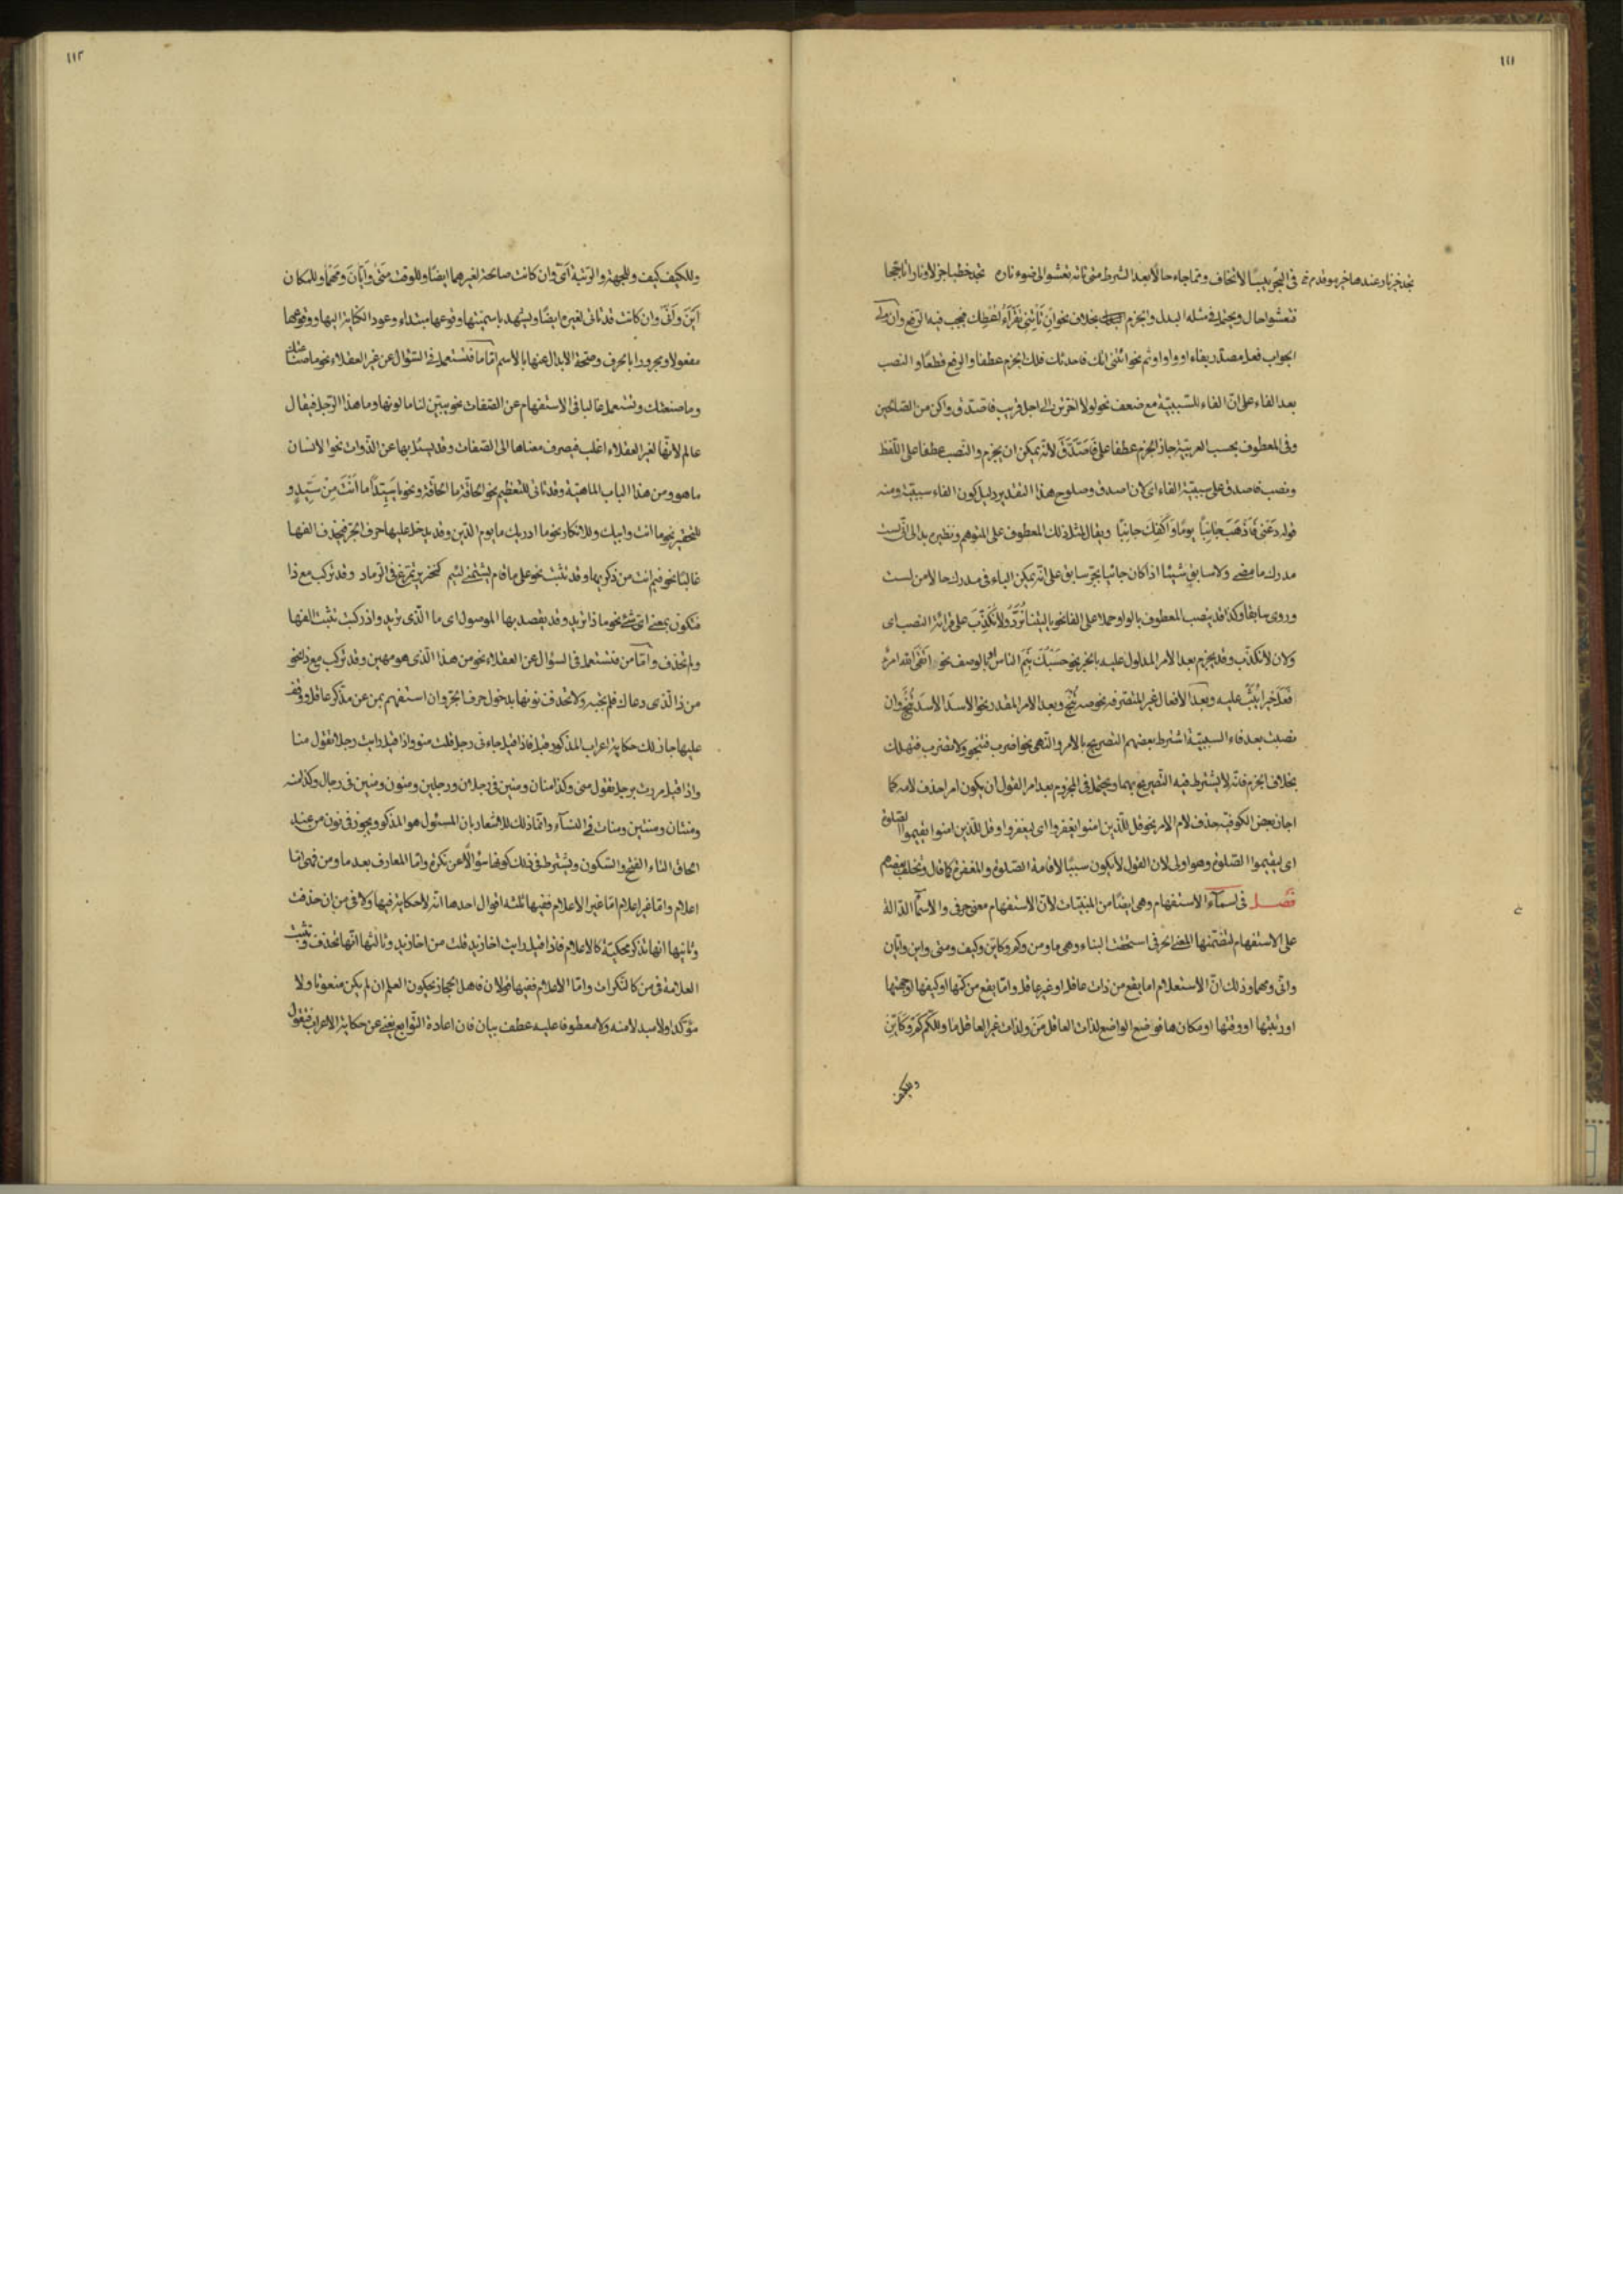 ١١١
تجد خير نار عندها خير موقد م في البحر يبسا لا تخاف ومما جاء حالا بعد الشرط متى تاته تعشو الى ضوء ناره تجد حطبا جزلا ونارا تاججا
فتعشوا حال ويحتمل في مثله البدل والجزم بخلاف نحو ان تاتني تقرأ الفظك فيجب فيه الرفع وان
الجواب فعل مصدر بفاء او واو او ثم نحو ائتني اتك فاحدثك فلك الجزم عطفا والرفع قطعا والنصب
بعد الفاء على ان الفاء للسببية مع ضعف نحو لولا اخرتني الى اجل قريب فاصدق واكن من الصالحين
وفي المعطوف بحسب العربية جاز الجزم عطفا على فاصدق لانه يمكن ان يجزم والنصب عطفا على اللفظ
ونصب فاصدق على سببية الفاء اى لان اصدق وصلوح هذا التقدير دليل كون الفاء سببية ومنه
قوله دعني فاذهب جانبا يوما واكفك جانبا ويقال لمثل ذلك المعطوف على المتوهم ونظيره بدا لى انى لست
مدرك ما مضى ولا سابق شيئا اذا كان جائيا بجر سابق على انه يمكن الباء في مدرك حالا من لست
وروى سابقا وكذا قد ينصب المعطوف بالواو حملا على الفا نحو يا ليتنا نرد ولا نكذب على قرائة النصب اى
ولان لا نكذب وقد يجزم بعد الامر المدلول عليه بالخبر نحو حسبك ينم الناس او بالوصف نحو اتقى الله امرء
فعل خيرا يثب عليه وبعد الافعال الغير المتصرفة نحو صه وبعد الامر المقدر نحو الاسد الاسد تنج وان
نصبت بعد فاء السببية اشترط بعضهم التصريح بالامر والنهى نحو اضرب فتنجو ولا تضرب فتهلك
بخلاف الجزم فانه لا يشترط فيه التصريح بهما ويحتمل في المجزوم بعد امر القول ان يكون امرا حذف لامه كما
اجاز بعض الكوفية حذف لام الامر نحو قل للذين امنوا يغفروا اى ليغفروا وقل للذين امنوا يقيموا الصلوة
اى ليقيموا الصلوة وهو اولى لان القول لا يكون سببا لاقامة الصلوة والمغفرة كما قال وتخلف بعضهم
فصل في اسماء الاستفهام وهى ايضا من المبنيات لان الاستفهام معنى حرفى والاسماء الدالة
على الاستفهام لتضمنها المعنى الحرفى استحقت البناء وهى ما ومن وكم وكاين وكيف ومتى واين وايان
وانى ومهما وذلك ان الاستعلام اما يقع من ذات عاقل او غير عاقل واما يقع من كمها او كيفها او جهتها
او رتبتها او وقتها او مكانها فوضع الواضع لذات العاقل من ولذات غير العاقل ما وللكم كم وكاين
وللكيف
١١٢
وللكيف كيف وللجهة والرتبة اى وان كانت صالحة لغيرهما ايضا وللوقت متى وايان ومهما وللمكان
اين وانى وان كانت قد تاتى لغيره ايضا ويشهد باسميتها وقوعها مبتداء وعود الكناية اليها ووقوعها
مفعولا ومجرورا بالحرف وصحة الابدال عنها بالاسم اما ما فتستعمل في السؤال عن غير العقلاء نحو ما صنعتك
وما صنعتك وتستعمل غالبا في الاستفهام عن الصفات نحو يبين لنا ما لونها وما هذا الرجل فيقال
عالم لانها لغير العقلاء اغلب فيصرف معناها الى الصفات وقد يسئل بها عن الذوات نحو الانسان
ما هو ومن هذا الباب الماهية وقد تاتى للتعظيم نحو الحاقة ما الحاقة ونحو يا سيدا ما انت من سيد و
للتحقير نحو ما انت وابيك وللانكار نحو ما ادريك ما يوم الدين وقد يدخل عليها حرف الجر فيحذف الفها
غالبا نحو فيم انت من ذكريها وقد تثبت نحو على ما قام يشتمنى لئيم كخنزير تمرغ في الرماد وقد تركب مع ذا
فتكون بمعنى اى شئ نحو ما ذا تريد وقد يقصد بها الموصول اى ما الذى تريد واذ ركبت تثبت الفها
ولم تحذف واما من فتستعمل في السؤال عن العقلاء نحو من هذا الذى هو مهين وقد تركب مع ذا نحو
من ذا الذى دعاك فلم يجبه ولا تحذف نونها بدخول حرف الجر وان استفهم بمن عن مذكر عاقل ووقف
عليها جاز لك حكاية اعراب المذكور قبل فاذا قيل جاءنى رجل قلت منو واذا قيل رايت رجلا تقول منا
واذا قيل مررت برجل تقول منى وكذا منان ومنين في رجلان ورجلين ومنون ومنين في رجال وكذا منه
ومنتان ومنتين ومنات في النساء وانما ذلك للاشعار بان المسئول هو المذكور ويجوز في نون من عند
الحاق التاء الفتح والسكون ويشترط في ذلك كونها سؤالا عن نكرة واما المعارف بعد ما ومن فهى اما
اعلام واما غير اعلام اما غير الاعلام ففيها ثلثة اقوال احدها انه لا حكاية فيها ولا في من بان حذفت
وثانيها انها تذكر محكية كالاعلام فاذا قيل رايت اخا زيد قلت من اخا زيد وثالثها انها تحذف وتثبت
العلامة في من كالنكرات واما الاعلام ففيها قولان فاهل الحجاز يحكون العلم ان لم يكن منعوتا ولا
مؤكدا ولا مبدلا منه ولا معطوفا عليه عطف بيان فان اعادة التوابع يغنى عن حكاية الاعراب فتقول